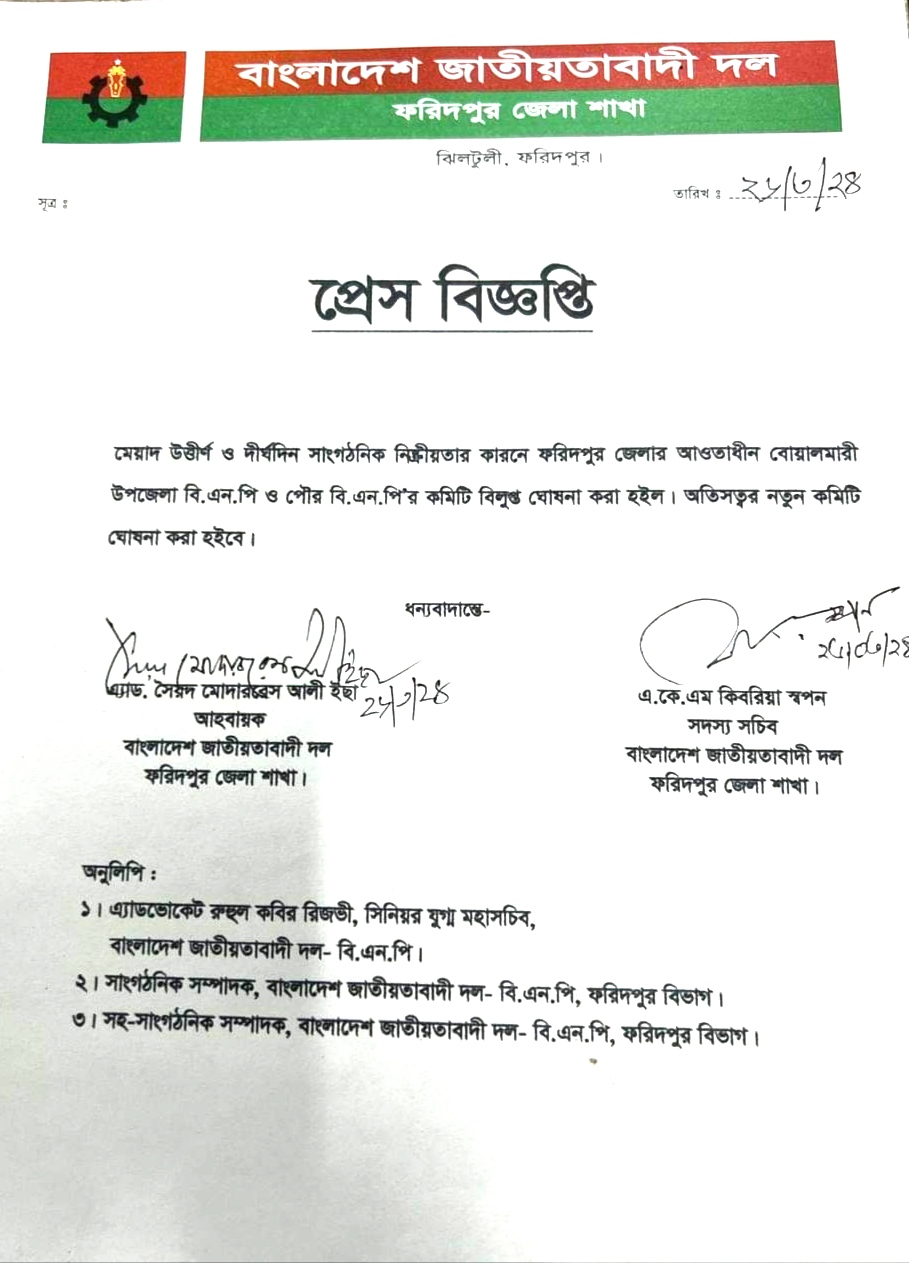 বাংলাদেশ জাতীয়তাবাদী দল
ফরিদপুর জেলা শাখা
ঝিলটুলী, ফরিদপুর।
সূত্র ঃ
তারিখ ঃ ২৮/৩/২৪
প্রেস বিজ্ঞপ্তি
মেয়াদ উত্তীর্ণ ও দীর্ঘদিন সাংগঠনিক নিষ্ক্রীয়তার কারনে ফরিদপুর জেলার আওতাধীন বোয়ালমারী
উপজেলা বি.এন.পি ও পৌর বি.এন.পি'র কমিটি বিলুপ্ত ঘোষনা করা হইল। অতিসত্বর নতুন কমিটি
ঘোষনা করা হইবে।
ধন্যবাদান্তে-
এ্যাড. সৈয়দ মোদাররেস আলী ইছা
আহবায়ক
বাংলাদেশ জাতীয়তাবাদী দল
ফরিদপুর জেলা শাখা।
এ.কে.এম কিবরিয়া স্বপন
সদস্য সচিব
বাংলাদেশ জাতীয়তাবাদী দল
ফরিদপুর জেলা শাখা।
অনুলিপি :
১। এ্যাডভোকেট রুহুল কবির রিজভী, সিনিয়র যুগ্ম মহাসচিব,
বাংলাদেশ জাতীয়তাবাদী দল- বি.এন.পি।
২। সাংগঠনিক সম্পাদক, বাংলাদেশ জাতীয়তাবাদী দল- বি.এন.পি, ফরিদপুর বিভাগ।
৩। সহ-সাংগঠনিক সম্পাদক, বাংলাদেশ জাতীয়তাবাদী দল- বি.এন.পি, ফরিদপুর বিভাগ।